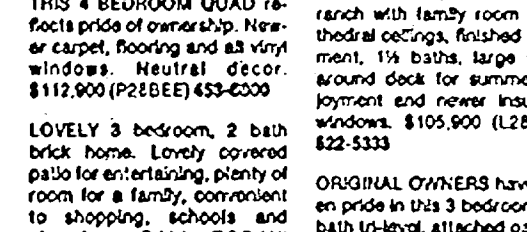 THIS 4 BEDROOM QUAD re-
flects pride of ownership. New-
er carpet, flooring and all vinyl
windows. Neutral decor.
$112,900 (P28BEE) 453-
LOVELY 3 bedroom, 2 bath
brick home. Lovely covered
patio for entertaining, plenty of
room for a family, convenient
to shopping, schools and
ranch with family room
thedral ceilings, finished
ment, 1½ baths, large
around deck for summe
joyment and newer insu
windows. $105,900 (L28
522-5333
ORIGINAL OWNERS hav
en pride in this 3 bedroom
bath tri-level, attached